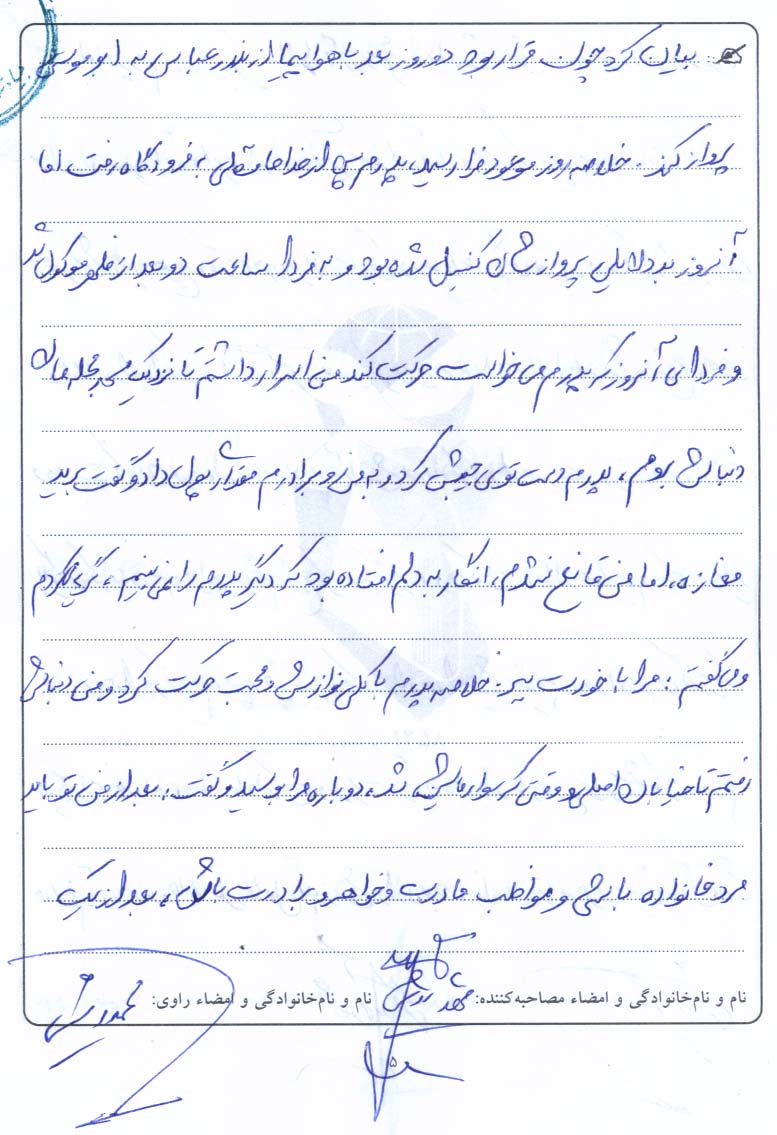 بیان کرد چون قرار بود دو روز بعد با هواپیما از بندرعباس به ابوموسی
پرواز کند. خلاصه روز موعود فرا رسید، پدرم پس از خداحافظی به فرودگاه رفت، اما
آنروز بد دلایلی پروازشان کنسل شده بود و به فردا ساعت دو بعد از ظهر موکول شد
و فردای آنروز که پدرم می خواست حرکت کند من اصرار داشتم تا نزدیک مسجد محله مان
دنبالش بروم، پدرم دست توی جیبش کرد و به من و برادرم مقداری پول داد و گفت بروید
مغازه، اما من قانع نشدم، انگار به دلم افتاده بود که دیگر پدرم را نمی بینم، گریه میکردم
و می گفتم: مرا با خودت ببر. خلاصه پدرم با کلی نوازش و محبت حرکت کرد و من دنبالش
رفتم تا خیابان اصلی و وقتی که سوار ماشین شد، دوباره مرا بوسید و گفت: بعد از من تو باید
مرد خانواده باشی و مواظب مادرت و خواهر و برادرت باش، بعد از یک
نام و نام‌خانوادگی و امضاء مصاحبه‌کننده: نام و نام‌خانوادگی و امضاء راوی:
۵